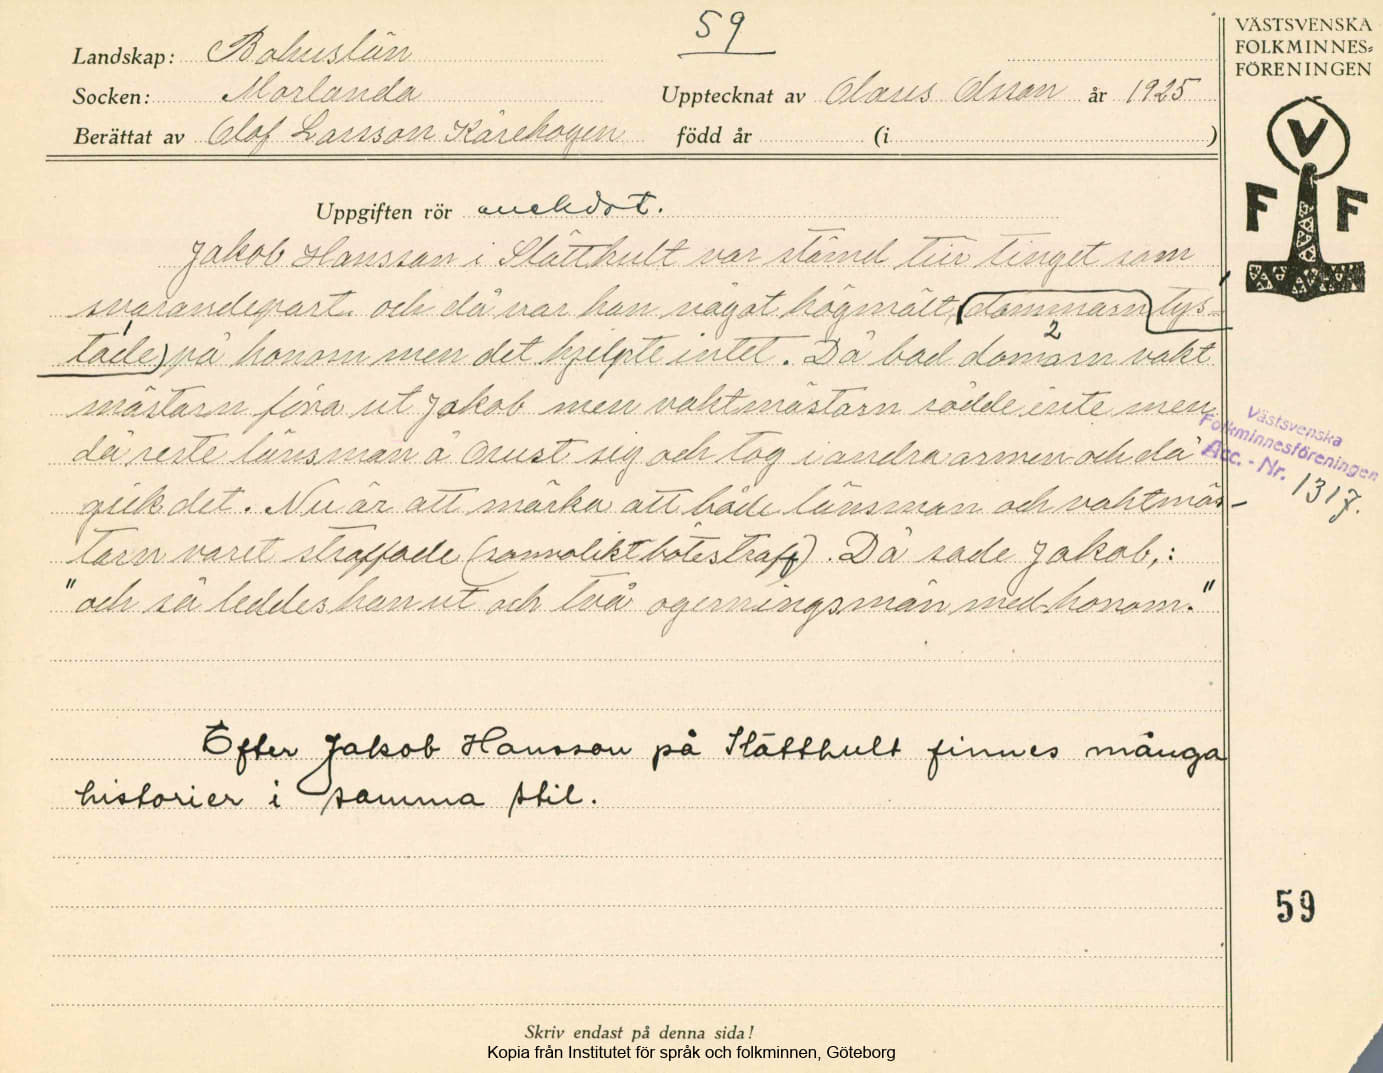 59
VÄSTSVENSKA
FOLKMINNES-
FÖRENINGEN
V
F F
Landskap: Bohuslän
Socken: Morlanda
Upptecknat av Olaus Olsson år 1925
Berättat av Olof Larsson Kärehogen född år (i )
Uppgiften rör anekdot.
Jakob Hansson i Slätthult var stämd till tinget som
svarandepart. och då var han något högmält, dommarn tys-
tade) på honom men det hjelpte intet. Då bad domarn vakt
2
mästarn föra ut Jakob men vaktmästarn rådde inte men
då reste länsman å Orust sig och tog i andra armen och då
gick det. Nu är att märka att både länsman och vaktmäs-
tarn varet straffade (sannolikt bötestraff). Då sade Jakob,:
"och så leddes han ut och två ogerningsmän med honom."
Efter Jakob Hansson på Slätthult finnes många
historier i samma stil.
Västsvenska
Folkminnesföreningen
Acc. - Nr. 1317.
59
Skriv endast på denna sida!
Kopia från Institutet för språk och folkminnen, Göteborg